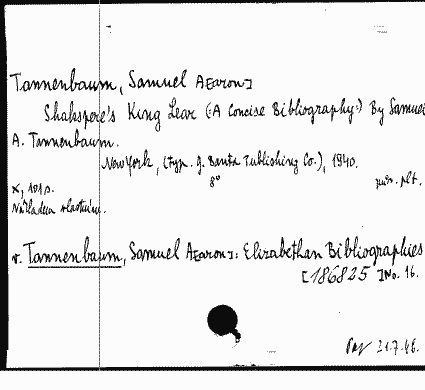 Tannenbaum, Samuel A[aron]
Shakspere's King Lear (:A Concise Bibliography:) By Samuel
A. Tannenbaum.
New York, (typ. J. Santa Publishing Co.), 1940.
x, 101 s. 8°
Nákladem vlastním.
v. Tannenbaum, Samuel A[aron]: Elizabethan Bibliographies
[186825] No. 16.
21.7.48.